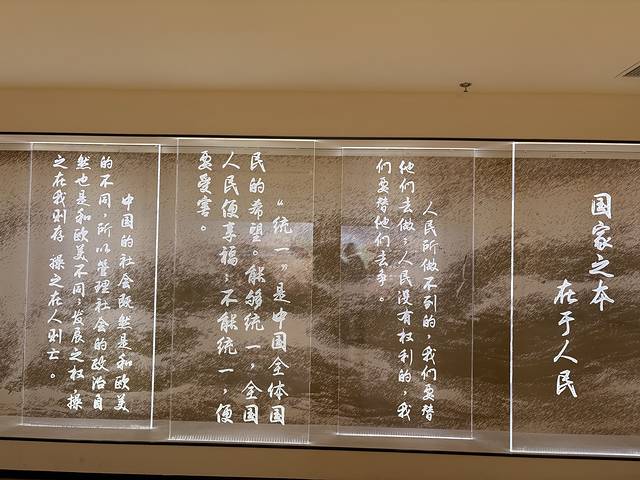 国家之本
在于人民
人民所做不到的，我们要替
他们去做；人民没有权利的，我
们要替他们去争。
“统一”是中国全体国
民的希望。能够统一，全国
人民便享福；不能统一，便
要受害。
中国的社会既然是和欧美
的不同，所以管理社会的政治自
然也是和欧美不同；发展之权，操
之在我则存，操之在人则亡。